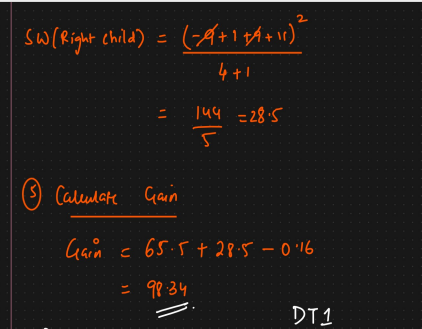 SW(Right child) = (-9+1+9+11)²
4+1
= 144
5
=28.5
⑤ Calculate Gain
Gain = 65.5 + 28.5 - 0.16
= 98.34
DT1